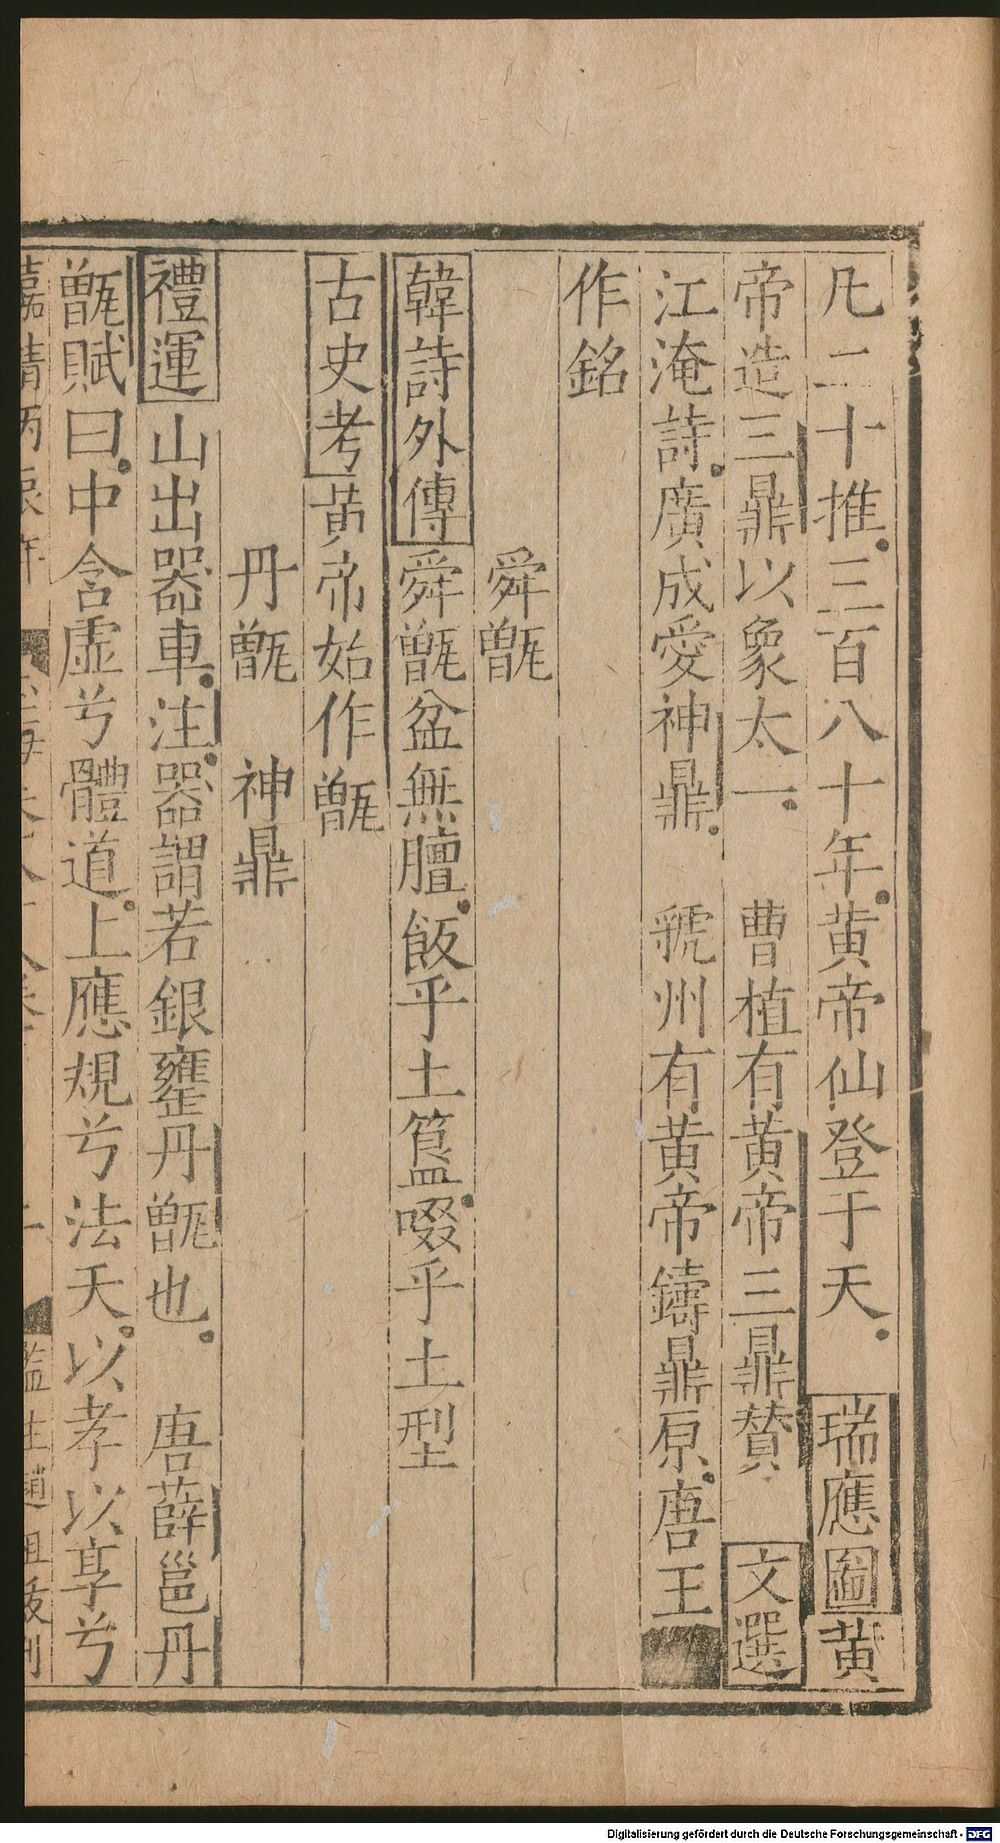 凡二十推三百八十年黄帝仙登于天 瑞應圖黄
帝造三鼎以象太一 曹植有黄帝三鼎賛 文選
江淹詩廣成愛神鼎 虢州有黄帝鑄鼎原唐王
作銘
舜甑
韓詩外傳舜甑盆無膻飯乎土簋啜乎土型
古史考黄帝始作甑
丹甑 神鼎
禮運山出器車注器謂若銀甕丹甑也 唐薛邕丹
甑賦曰中含虛兮體道上應規兮法天以孝以享兮
嘉靖丙辰年
監生趙
刊
Digitalisierung gefördert durch die Deutsche Forschungsgemeinschaft - DFG